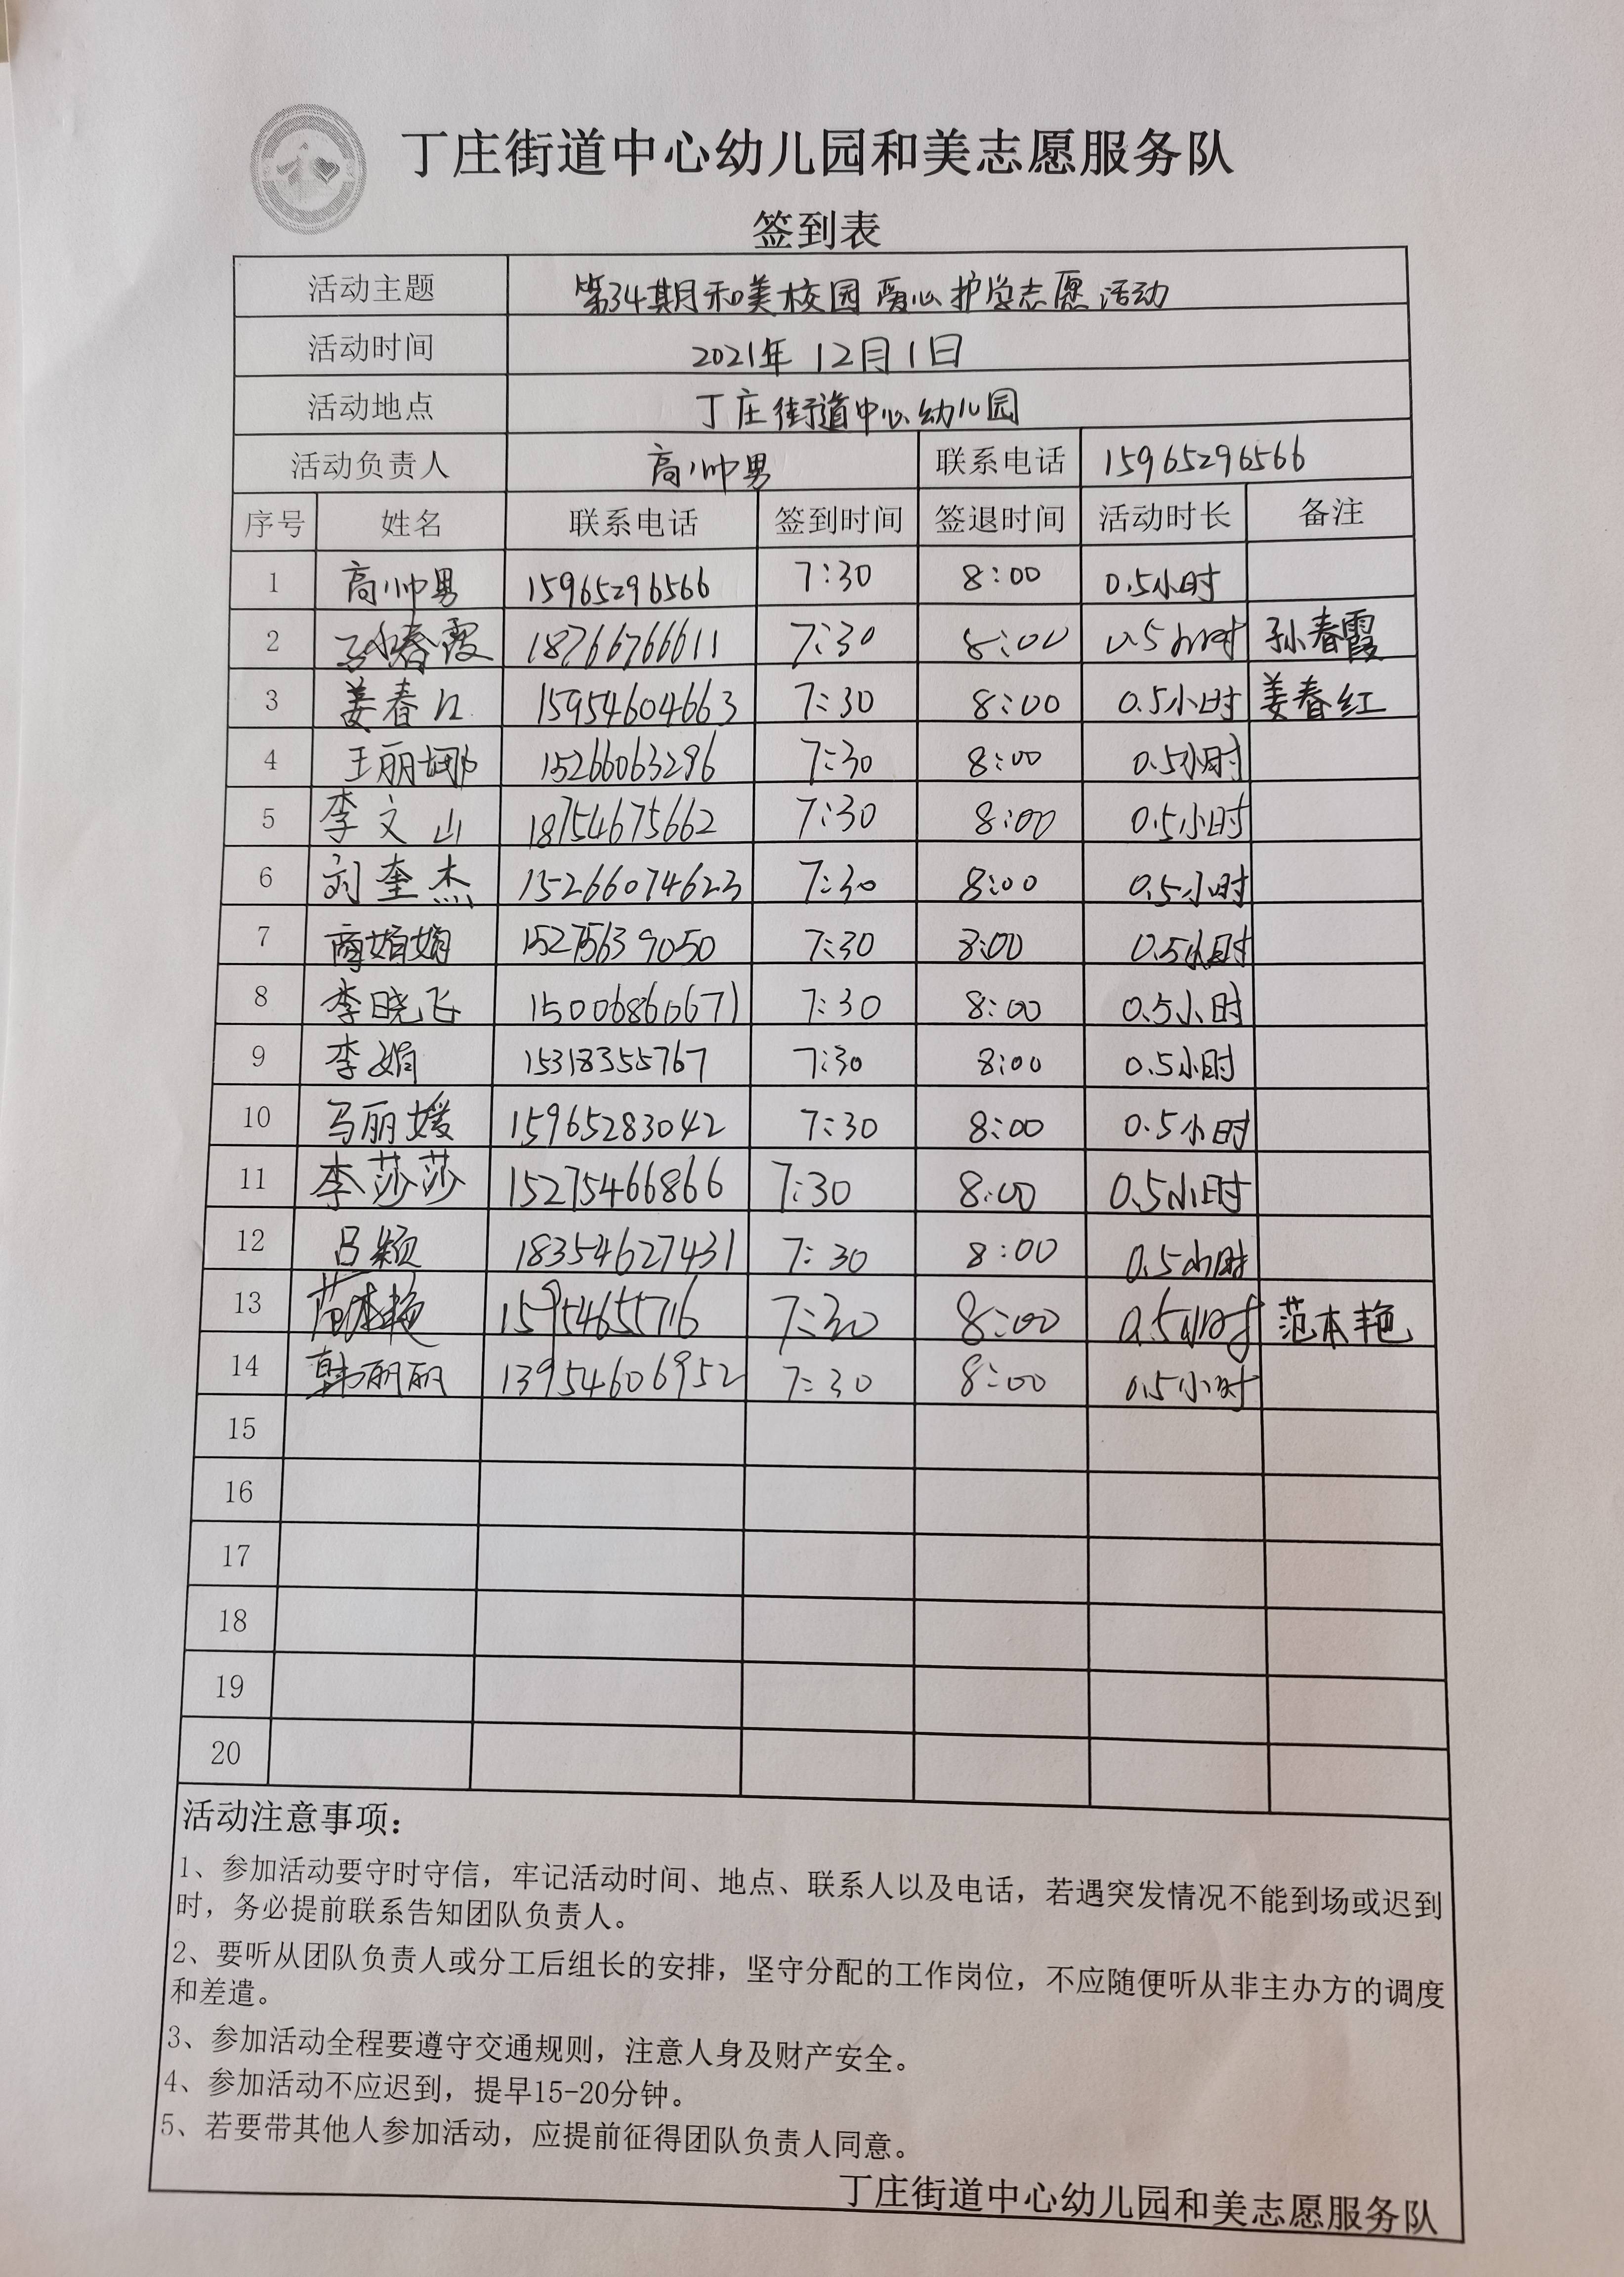 丁庄街道中心幼儿园和美志愿服务队
签到表
活动主题 第34期和美校园爱心护学志愿活动
活动时间 2021年12月1日
活动地点 丁庄街道中心幼儿园
活动负责人 高帅男 联系电话 15965296566
序号 姓名 联系电话 签到时间 签退时间 活动时长 备注
1 高帅男 15965296566 7:30 8:00 0.5小时
2 孙春霞 18766766611 7:30 8:00 0.5小时 孙春霞
3 姜春红 15954604663 7:30 8:00 0.5小时 姜春红
4 王丽娜 15266063296 7:30 8:00 0.5小时
5 李文山 18754675662 7:30 8:00 0.5小时
6 刘奎杰 15266074623 7:30 8:00 0.5小时
7 商娟娟 15275639050 7:30 8:00 0.5小时
8 李晓飞 15006860671 7:30 8:00 0.5小时
9 李娟 15318355767 7:30 8:00 0.5小时
10 马丽媛 15965283042 7:30 8:00 0.5小时
11 李莎莎 15275466866 7:30 8:00 0.5小时
12 吕颖 18354627431 7:30 8:00 0.5小时
13 范本艳 15954655716 7:30 8:00 0.5小时 范本艳
14 韩丽丽 13954606952 7:30 8:00 0.5小时
15
16
17
18
19
20
活动注意事项：
1、参加活动要守时守信，牢记活动时间、地点、联系人以及电话，若遇突发情况不能到场或迟到
时，务必提前联系告知团队负责人。
2、要听从团队负责人或分工后组长的安排，坚守分配的工作岗位，不应随便听从非主办方的调度
和差遣。
3、参加活动全程要遵守交通规则，注意人身及财产安全。
4、参加活动不应迟到，提早15-20分钟。
5、若要带其他人参加活动，应提前征得团队负责人同意。
丁庄街道中心幼儿园和美志愿服务队